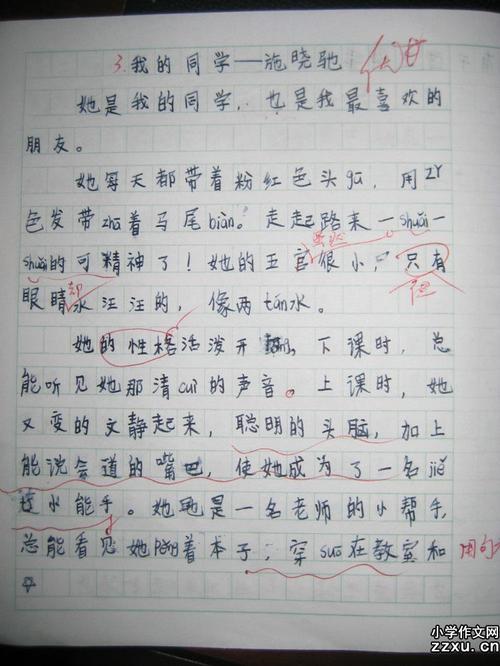 3.我的同学——施晓驰 优甘
她是我的同学，也是我最喜欢的
朋友。
她每天都带着粉红色头gū，用zǐ
色发带zhā着马尾biàn。走起路来一shuǎi一
shuǎi的可精神了！她的五官很小，只有
眼睛水汪汪的，像两tán水。
她的性格活泼开lǎng。下课时，总
能听见她那清cuì的声音。上课时，她
又变的文静起来，聪明的头脑，加上
能说会道的嘴巴，使她成为了一名jiě
力小能手。她是一名老师的小帮手，
总能看见她pěng着本子，穿suō在教室和 用句
小学作文网
zzxu.cn